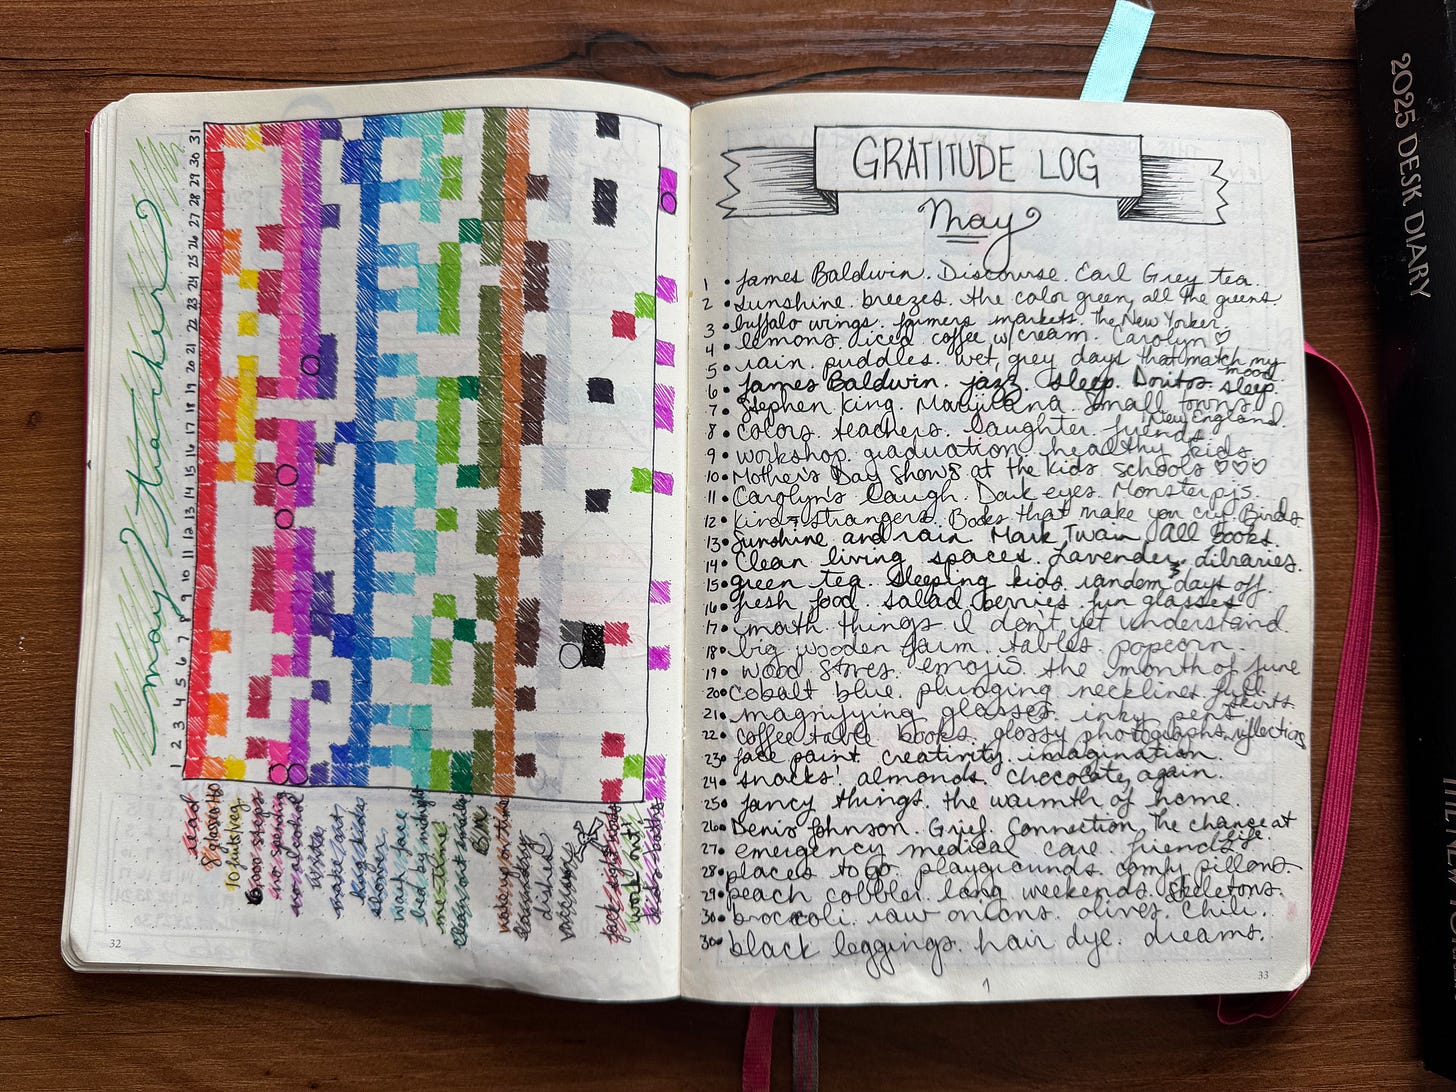 may tracker
31
30
29
28
27
26
25
24
23
22
21
20
19
18
17
16
15
14
13
12
11
10
9
8
7
6
5
4
3
2
1
read
8 glasses H2O
10 fruits/veg
6000 steps
no spending
no alcohol
write
make art
hug kids
shower
wash face
bed by midnight
me time
clean out emails
BM
wake up on time
laundry
dishes
vacuum
pack night foods
work out
kids baths
32
GRATITUDE LOG
May
1 • James Baldwin. Discourse. Earl Grey tea.
2 • sunshine. breezes. the color green, all the greens
3 • buffalo wings. farmers markets. The New Yorker
4 • lemons. iced coffee w/ cream. Carolyn ♡
5 • rain puddles. wet, grey days that match my mood
6 • James Baldwin. jazz. sleep. Doritos. sleep.
7 • Stephen King. Marijuana. Small towns
8 • colors. teachers. laughter. friends. New England.
9 • workshop. graduation. healthy kids
10 • Mother's Day shows at the kids schools ♡♡♡
11 • Carolyn's laugh. Dark eyes. Monster pjs.
12 • Kind strangers. Books that make you cry. Birds
13 • Sunshine and rain. Mark Twain. All books.
14 • Clean living spaces. Lavender. Libraries.
15 • green tea. Sleeping kids. random days off.
16 • fresh food. salad. berries. fun glasses
17 • math. things I don't yet understand.
18 • big wooden farm tables. popcorn.
19 • wood stoves. emojis. the month of June
20 • cobalt blue. plunging necklines. full skirts
21 • magnifying glasses. inky pens.
22 • coffee table books. glossy photographs. reflections
23 • face paint. creativity. imagination.
24 • snacks! almonds. chocolate, again.
25 • fancy things. the warmth of home.
26 • Denis Johnson. Grief. Connection. The chance at life.
27 • emergency medical care. friends
28 • places to go. playgrounds. comfy pillows.
29 • peach cobbler. long weekends. skeletons.
30 • broccoli. raw onions. olives. chili.
30 • black leggings. hair dye. dreams.
33
2025 DESK DIARY
THE NEW YORKER